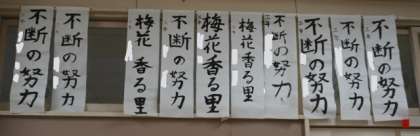 不断の努力
不断の努力
不断の努力
不断の努力
梅花香る里
梅花香る里
不断の努力
梅花香る里
不断の努力
不断の努力